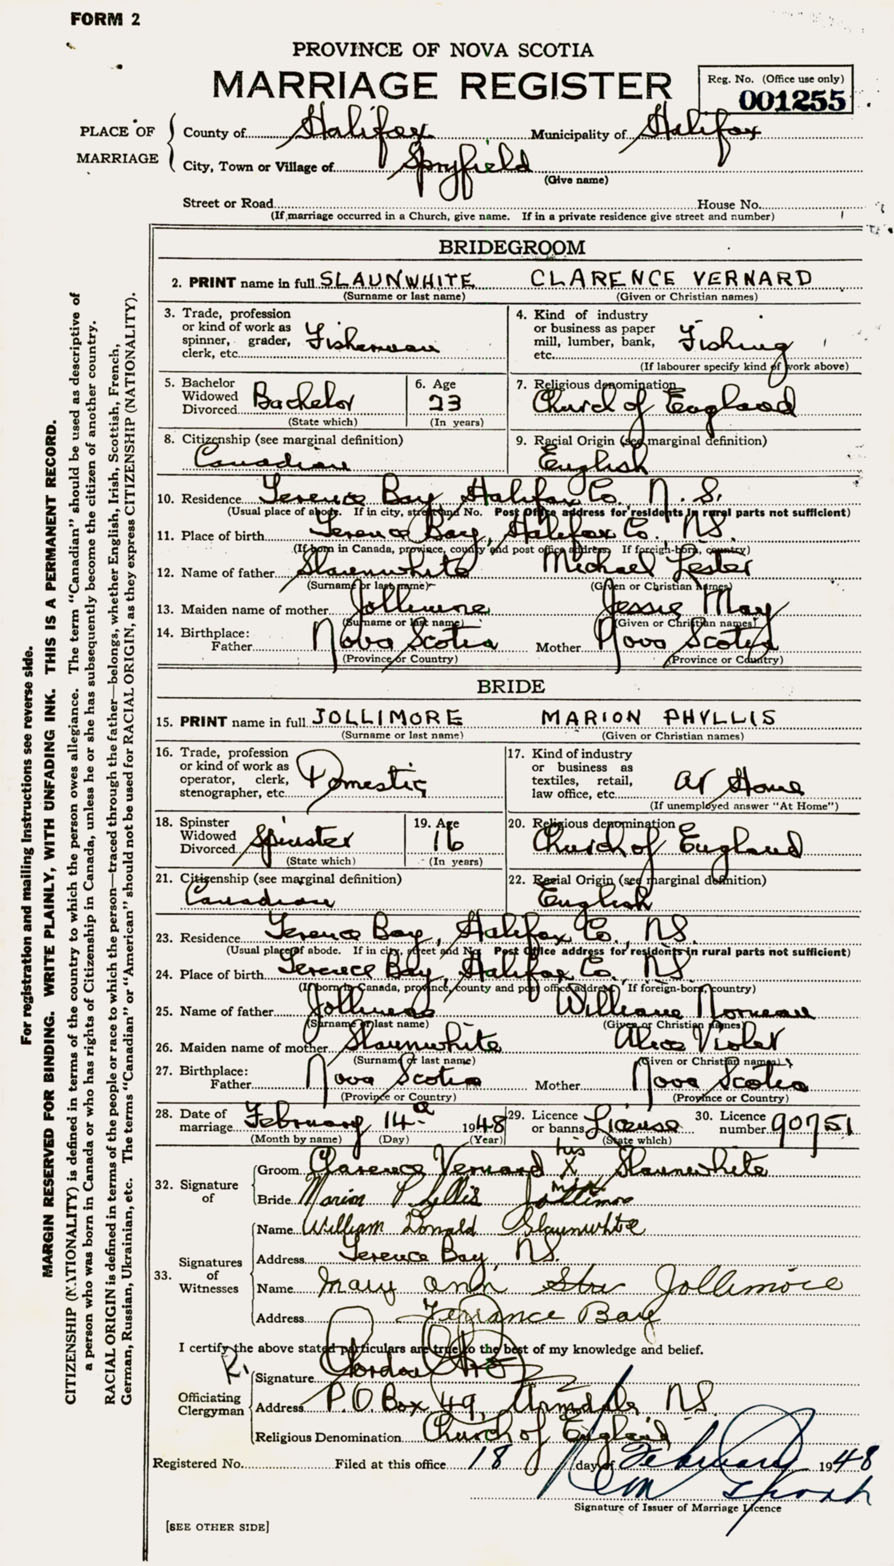 FORM 2
PROVINCE OF NOVA SCOTIA
MARRIAGE REGISTER
Reg. No. (Office use only)
001255
PLACE OF MARRIAGE
County of Halifax Municipality of Halifax
City, Town or Village of Spryfield
(Give name)
Street or Road House No.
(If marriage occurred in a Church, give name. If in a private residence give street and number)
BRIDEGROOM
2. PRINT name in full SLAUNWHITE CLARENCE VERNARD
(Surname or last name) (Given or Christian names)
3. Trade, profession or kind of work as spinner, grader, clerk, etc. Fisherman
4. Kind of industry or business as paper mill, lumber, bank, etc. Fishing
(If labourer specify kind of work above)
5. Bachelor Widowed Divorced Bachelor
(State which)
6. Age 23
(In years)
7. Religious denomination Church of England
8. Citizenship (see marginal definition) Canadian
9. Racial Origin (see marginal definition) English
10. Residence Terence Bay, Halifax Co. N.S.
(Usual place of abode. If in city, street and No. Post Office address for residents in rural parts not sufficient)
11. Place of birth Terence Bay, Halifax Co. NS.
(If born in Canada, province, county and post office address. If foreign-born, country)
12. Name of father Slaunwhite Michael Lester
(Surname or last name) (Given or Christian Names)
13. Maiden name of mother Jollimore Jessie May
(Surname or last name) (Given or Christian names)
14. Birthplace: Father Nova Scotia Mother Nova Scotia
(Province or Country) (Province or Country)
BRIDE
15. PRINT name in full JOLLIMORE MARION PHYLLIS
(Surname or last name) (Given or Christian names)
16. Trade, profession or kind of work as operator, clerk, stenographer, etc. Domestic
17. Kind of industry or business as textiles, retail, law office, etc. At Home
(If unemployed answer "At Home")
18. Spinster Widowed Divorced Spinster
(State which)
19. Age 16
(In years)
20. Religious denomination Church of England
21. Citizenship (see marginal definition) Canadian
22. Racial Origin (see marginal definition) English
23. Residence Terence Bay, Halifax Co., NS.
(Usual place of abode. If in city, street and No. Post Office address for residents in rural parts not sufficient)
24. Place of birth Terence Bay, Halifax Co. NS
(If born in Canada, province, county and post office address. If foreign-born, country)
25. Name of father William Norman
(Surname or last name) (Given or Christian names)
26. Maiden name of mother Slaunwhite Alice Violet
(Surname or last name) (Given or Christian names)
27. Birthplace: Father Nova Scotia Mother Nova Scotia
(Province or Country) (Province or Country)
28. Date of marriage February 14 1948
(Month by name) (Day) (Year)
29. Licence or banns License
(State which)
30. Licence number 90751
32. Signature of
Groom Clarence Vernard his X mark Slaunwhite
Bride Marion Phyllis Jollimore
33. Signatures of Witnesses
Name William Donald Slaunwhite
Address Terence Bay, NS.
Name Mary ann Jollimore
Address Terrance Bay
I certify the above stated particulars are true to the best of my knowledge and belief.
Officiating Clergyman
Signature Gordon
Address P.O. Box 49, Armdale NS
Religious Denomination Church of England
Registered No. Filed at this office 18 day of February 1948
Signature of Issuer of Marriage Licence
[SEE OTHER SIDE]
For registration and mailing instructions see reverse side.
MARGIN RESERVED FOR BINDING. WRITE PLAINLY, WITH UNFADING INK. THIS IS A PERMANENT RECORD.
CITIZENSHIP (NATIONALITY) is defined in terms of the country to which the person owes allegiance. The term "Canadian" should be used as descriptive of
a person who was born in Canada or who has rights of Citizenship in Canada, unless he or she has subsequently become the citizen of another country.
RACIAL ORIGIN is defined in terms of the people or race to which the person—traced through the father—belongs, whether English, Irish, Scottish, French,
German, Russian, Ukrainian, etc. The terms "Canadian" or "American" should not be used for RACIAL ORIGIN, as they express CITIZENSHIP (NATIONALITY).